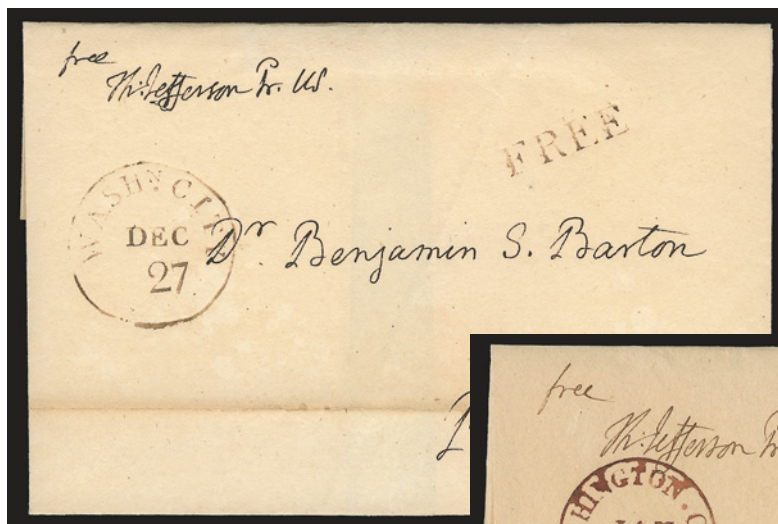 free
Th: Jefferson Pr. US.
FREE
WASHN. CITY
DEC
27
Dr Benjamin S. Barton
free
Th: Jefferson